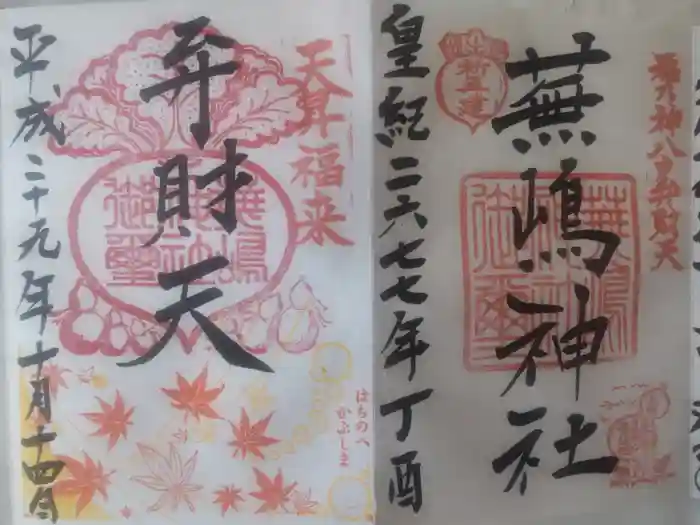 天昇福来
弁財天
蕪嶋神社
御璽
平成二十九年十月十四日
はちのへ
かぶしま
八臂弁財天
蕪嶋神社
蕪嶋神社
御璽
皇紀二六七七年丁酉